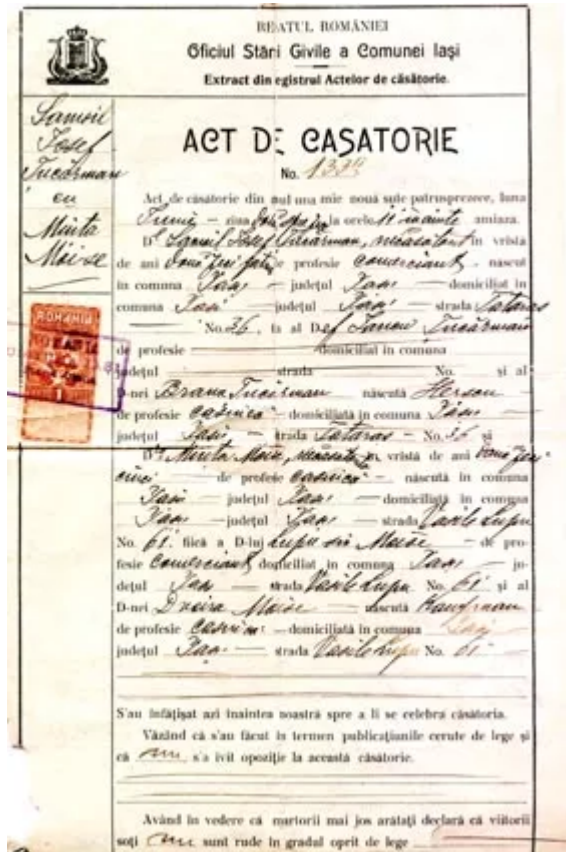 REATUL ROMÂNIEI
Oficiul Stări Civile a Comunei Iași
Extract din egistrul Actelor de căsătorie.
Samoil
Iosef
Tucărman
cu
Minta
Moise
ROMÂNIA
1
ACT DE CASATORIE
No.
Act de căsătorie din nul una mie nouă sute patrusprezece, luna
Iunie ziua orele 11 înainte amiaza.
D Samoil Iosef Tucărman, necăsătorit în vrîstă
de ani două zeci profesie comerciant născut
în comuna Iași județul Iași domiciliat în
comuna Iași județul Iași strada Tătăraș
No. 36, al Tucărman
de profesie domiciliat în comuna
județul strada No. și al
D-nei Brana Tucărman născută Herscu
de profesie casnică domiciliată în comuna Iași
județul Iași strada Tătăraș No. 36 și
D Minta Moise, vrîstă de ani două zeci
cinci de profesie casnică născută în comuna
Iași județul Iași domiciliat în comuna
Iași județul Iași strada Vasile Lupu
No. 61. fiică a D-lui Lupu Moise de pro-
fesie comerciant domiciliat în comuna Iași ju-
dețul Iași strada Vasile Lupu No. 61 și al
D-nei Dvoira Moise născută Kaufman
de profesie casnică domiciliată în comuna Iași
județul Iași strada Vasile Lupu No. 61
S'au înfățișat azi înaintea noastră spre a li se celebra căsătoria.
Văzând că s'au făcut în termen publicațiunile cerute de lege și
că nu s'a ivit opoziție la această căsătorie.
Având în vedere că martorii mai jos arătați declară că viitorii
soți nu sunt rude în gradul oprit de lege